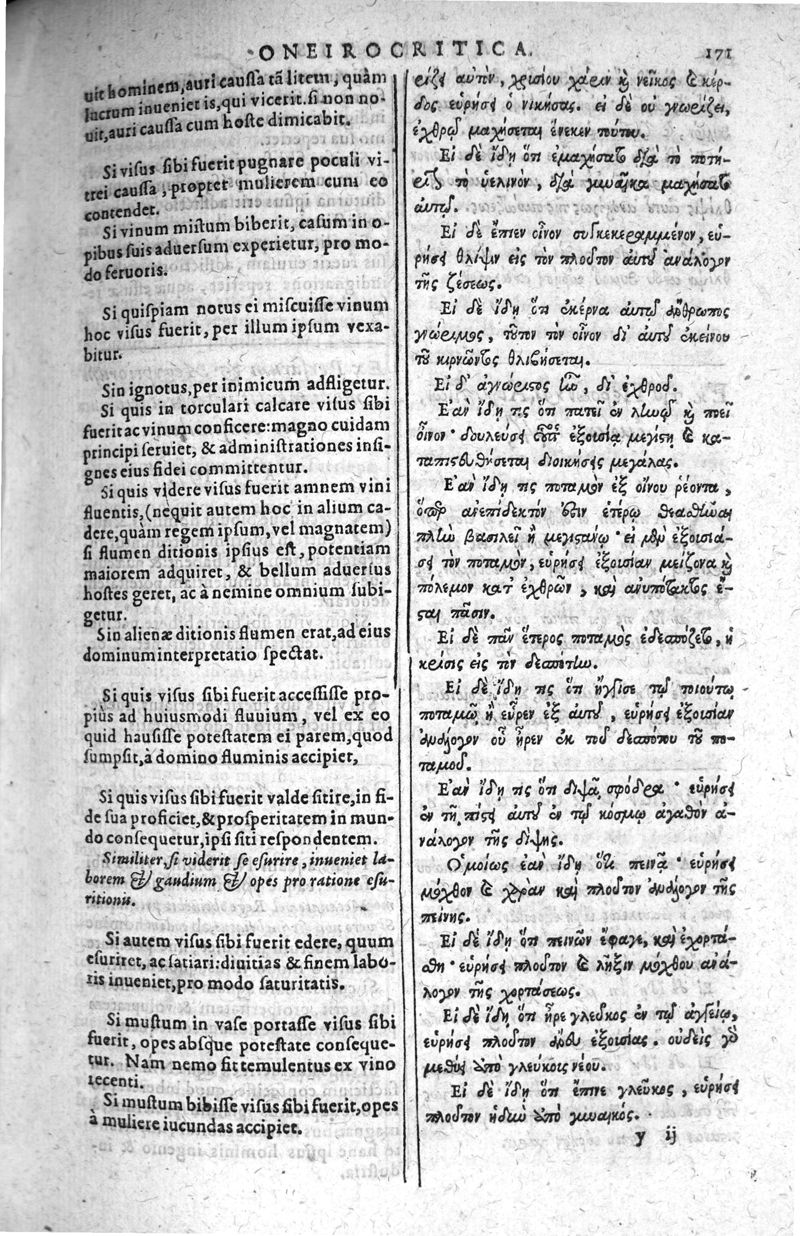 ONEIROCRITICA.
171
uit hominem, auri caussa tā litem, quàm
lucrum inueniet is, qui vicerit. si non no-
uit, auri caussa cum hoste dimicabit.
Si visus sibi fuerit pugnare poculi vi-
trei caussa, propter mulierem cum eo
contendet.
Si vinum mistum biberit, casum in o-
pibus suis aduersum experietur, pro mo-
do feruoris.
Si quispiam notus ei miscuisse vinum
hoc visus fuerit, per illum ipsum vexa-
bitur.
Sin ignotus, per inimicum adfligetur.
Si quis in torculari calcare visus sibi
fuerit ac vinum conficere: magno cuidam
principi seruiet, & administrationes insi-
gnes eius fidei committentur.
Si quis videre visus fuerit amnem vini
fluentis, (nequit autem hoc in alium ca-
dere, quàm regem ipsum, vel magnatem)
si flumen ditionis ipsius est, potentiam
maiorem adquiret, & bellum aduerius
hostes geret, ac à nemine omnium subi-
getur.
Sin alienæ ditionis flumen erat, ad eius
dominum interpretatio spectat.
Si quis visus sibi fuerit accessisse pro-
piùs ad huiusmodi fluuium, vel ex eo
quid hausisse potestatem ei parem, quod
sumpsit, à domino fluminis accipiet,
Si quis visus sibi fuerit valde sitire, in fi-
de sua proficiet, & prosperitatem in mun-
do consequetur, ipsi siti respondentem.
Similiter, si viderit se esurire, inueniet la-
borem & gaudium & opes pro ratione esu-
ritionis.
Si autem visus sibi fuerit edere, quum
esuriret, ac satiari: diuitias & finem labo-
ris inueniet, pro modo saturitatis.
Si mustum in vase portasse visus sibi
fuerit, opes absque potestate conseque-
tur. Nam nemo fit temulentus ex vino
recenti.
Si mustum bibisse visus sibi fuerit, opes
à muliere iucundas accipiet.
ρίζῃ αὐτὸν, χρυσίου χάριν καὶ νεῖκος καὶ κέρ-
δος εὑρήσει ὁ νικήσας. εἰ δὲ οὐ γνωρίζει,
ἐχθρῷ μαχήσεται ἕνεκεν τούτου.
Εἰ δὲ ἴδῃ ὅτι ἐμαχήσατο διὰ τὸ ποτή-
ριον τὸ ὑέλινον, διὰ γυναῖκα μαχήσεται
αὐτῷ.
Εἰ δὲ ἔπιεν οἶνον συγκεκεραμμένον, εὑ-
ρήσει θλίψιν εἰς τὸν πλοῦτον αὐτοῦ ἀνάλογον
τῆς ζέσεως.
Εἰ δὲ ἴδῃ ὅτι ἐκέρνα αὐτῷ ἄνθρωπος
γνώριμος, τοῦτον τὸν οἶνον δι' αὐτοῦ ἐκείνου
τοῦ κιρνῶντος θλιβήσεται.
Εἰ δ' ἀγνώριστος ἦν, δι' ἐχθροῦ.
Ἐὰν ἴδῃ τις ὅτι πατεῖ ἐν ληνῷ καὶ ποιεῖ
οἶνον· δουλεύσει ἐξουσίᾳ μεγίστῃ καὶ κα-
ταπιστευθήσεται διοικήσεις μεγάλας.
Ἐὰν ἴδῃ τις ποταμὸν ἐξ οἴνου ῥέοντα,
ὅπερ ἀνεπίδεκτόν ἐστιν ἑτέρῳ θεαθῆναι
πλὴν βασιλεῖ ἢ μεγιστάνῳ· εἰ μὲν ἐξουσιά-
σει τὸν ποταμὸν, εὑρήσει ἐξουσίαν μείζονα καὶ
πόλεμον κατ' ἐχθρῶν, καὶ ἀνυπότακτος ἔ-
σται πᾶσιν.
Εἰ δὲ πᾶν ἕτερος ποταμὸς ἐδεσπόζετο, ἡ
κρίσις εἰς τὸν δεσπότην.
Εἰ δὲ ἴδῃ τις ὅτι ἤγγισε τῷ τοιούτῳ
ποταμῷ ἢ εὗρεν ἐξ αὐτοῦ, εὑρήσει ἐξουσίαν
ἀνάλογον οὗ ἦρεν ἐκ τοῦ δεσπότου τοῦ πο-
ταμοῦ.
Ἐὰν ἴδῃ τις ὅτι διψᾷ σφόδρα· εὑρήσει
ἐν τῇ πίστει αὐτοῦ ἐν τῷ κόσμῳ ἀγαθὸν ἀ-
νάλογον τῆς δίψης.
Ὁμοίως ἐὰν ἴδῃ ὅτι πεινᾷ· εὑρήσει
μόχθον καὶ χαρὰν καὶ πλοῦτον ἀνάλογον τῆς
πείνης.
Εἰ δὲ ἴδῃ ὅτι πεινῶν ἔφαγε, καὶ ἐχορτά-
σθη· εὑρήσει πλοῦτον καὶ λῆξιν μόχθου ἀνά-
λογον τῆς χορτάσεως.
Εἰ δὲ ἴδῃ ὅτι ἦρε γλεῦκος ἐν τῷ ἀγγείῳ,
εὑρήσει πλοῦτον ἄνευ ἐξουσίας. οὐδεὶς γὰρ
μεθύει ἀπὸ γλεύκοις νέου.
Εἰ δὲ ἴδῃ ὅτι ἔπινε γλεῦκος, εὑρήσει
πλοῦτον ἡδὺν ἀπὸ γυναικός.
y ij